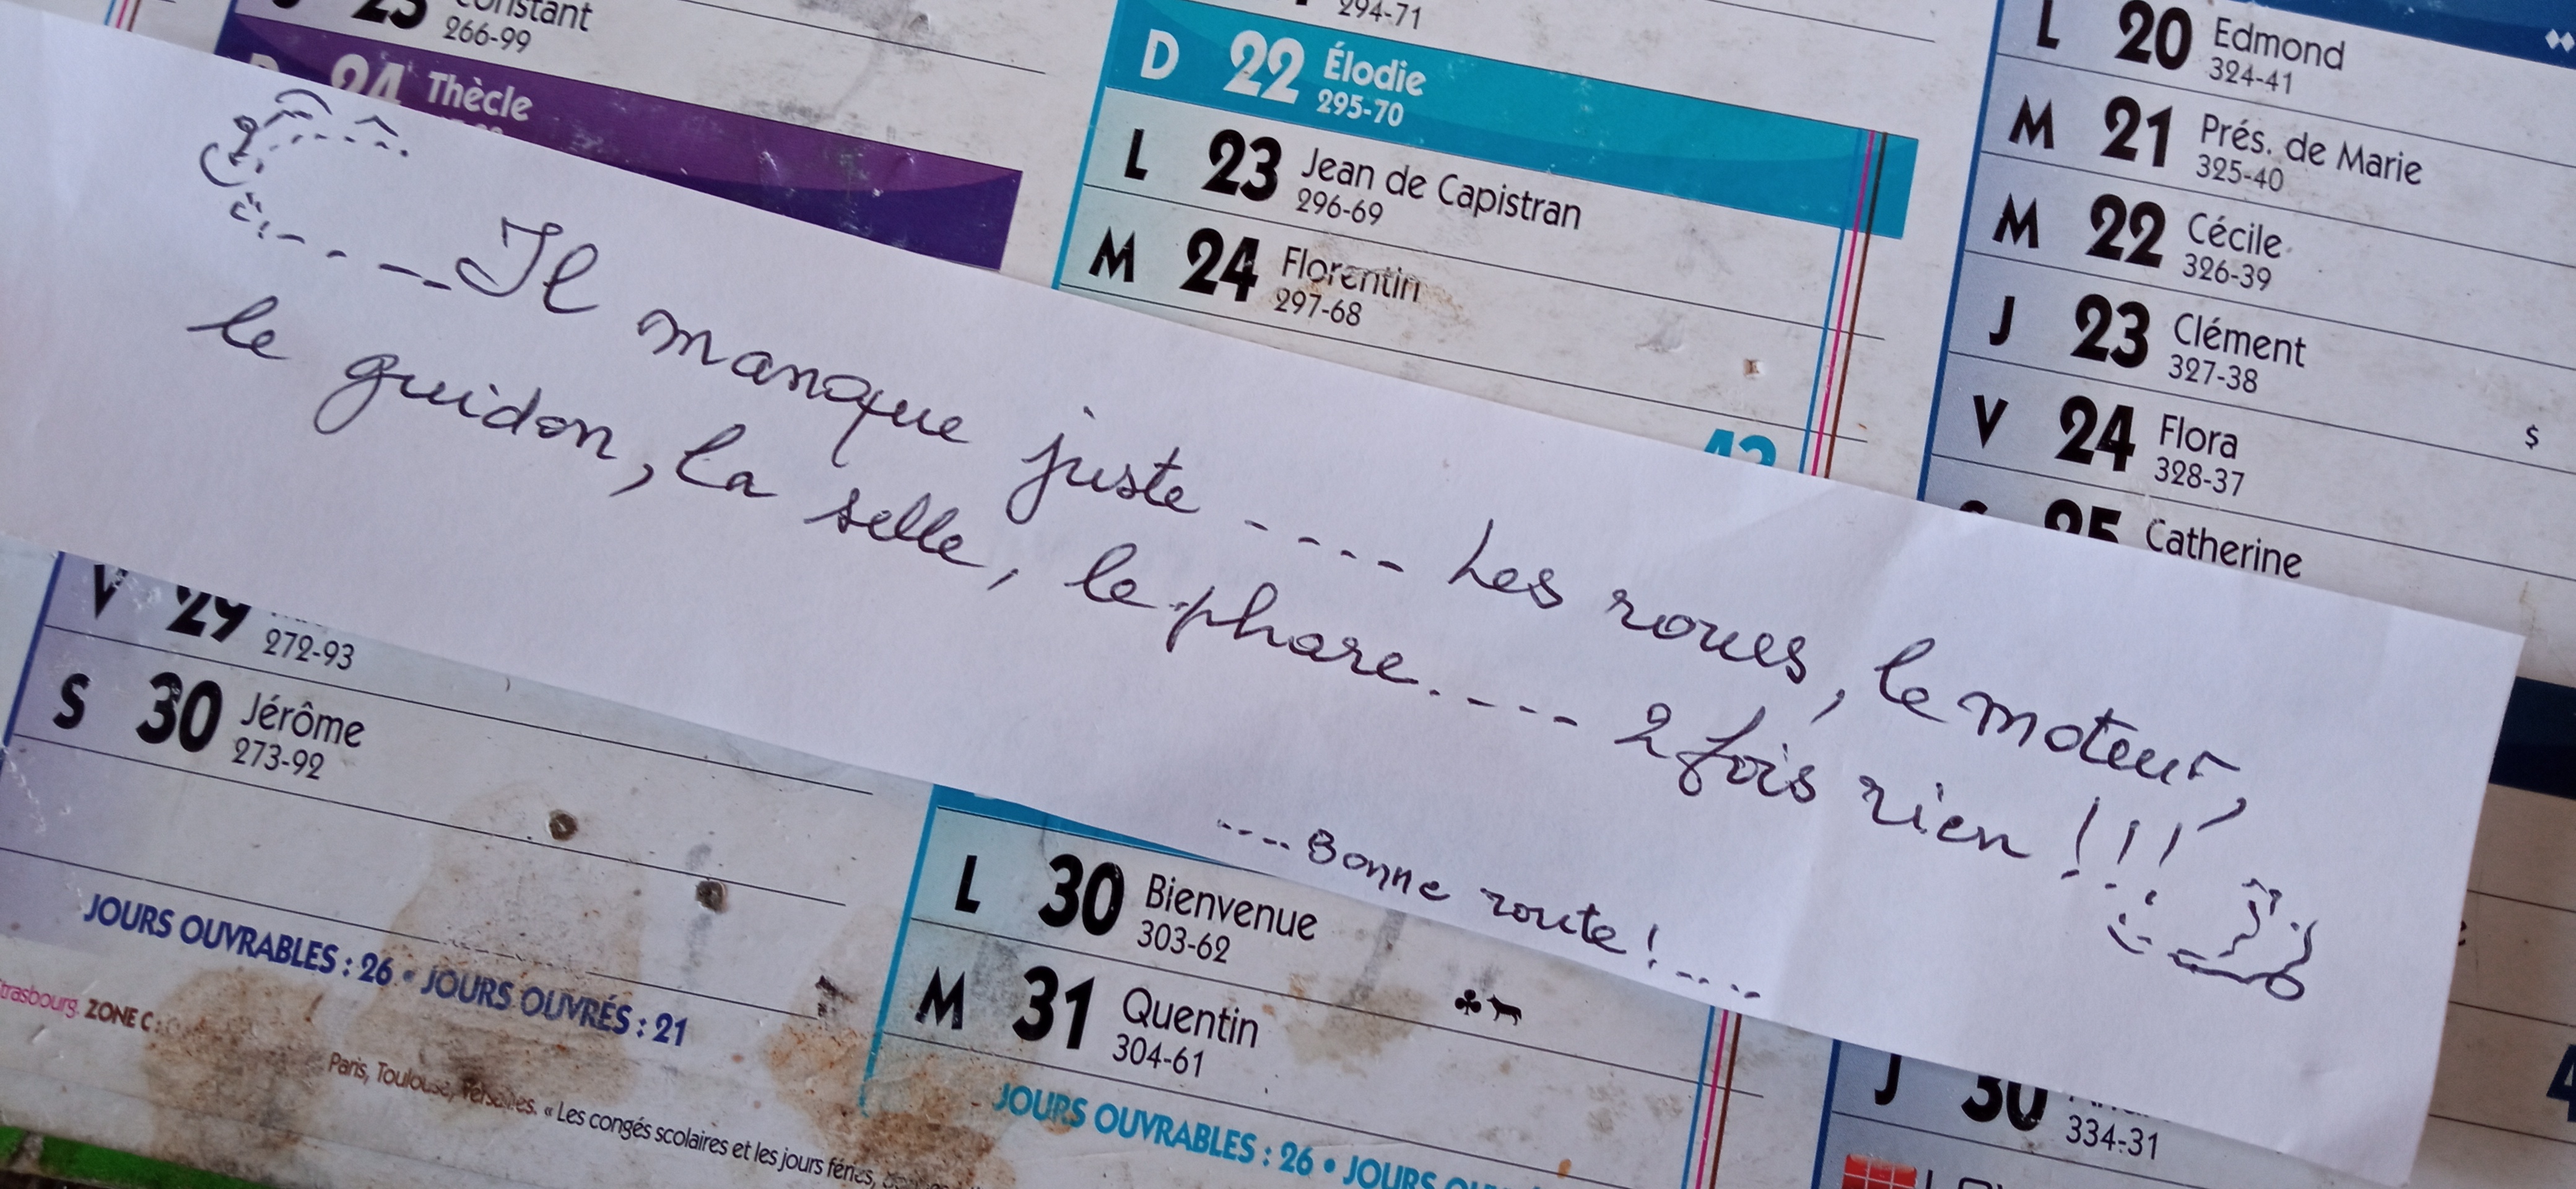 23 Constant
266-99
24 Thècle
V 29
272-93
S 30 Jérôme
273-92
JOURS OUVRABLES : 26 • JOURS OUVRÉS : 21
Strasbourg. ZONE C :
Paris, Toulouse, Versailles. « Les congés scolaires et les jours fériés,
294-71
D 22 Élodie
295-70
L 23 Jean de Capistran
296-69
M 24 Florentin
297-68
L 30 Bienvenue
303-62
M 31 Quentin
304-61
JOURS OUVRABLES : 26 • JOURS
L 20 Edmond
324-41
M 21 Prés. de Marie
325-40
M 22 Cécile
326-39
J 23 Clément
327-38
V 24 Flora
328-37
$
25 Catherine
J 30
334-31
---- Il manque juste ---- Les roues, le moteur,
le guidon, la selle, le phare. ---- 2 fois rien !!!
---- Bonne route ! ----